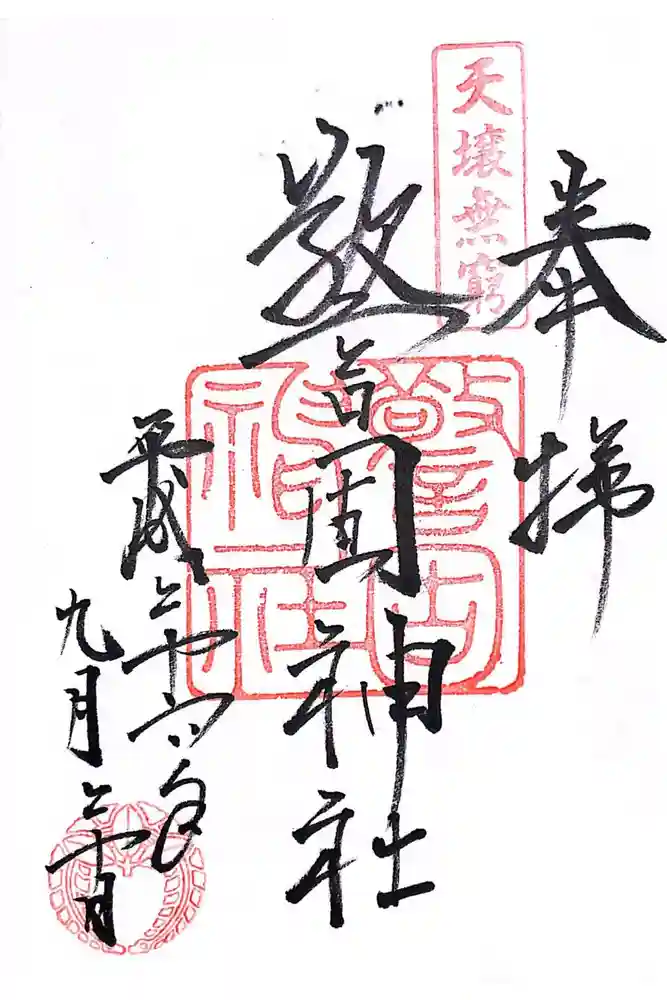 天壌無窮
奉拝
警固神社
警固神社
平成二十六年
九月二十日